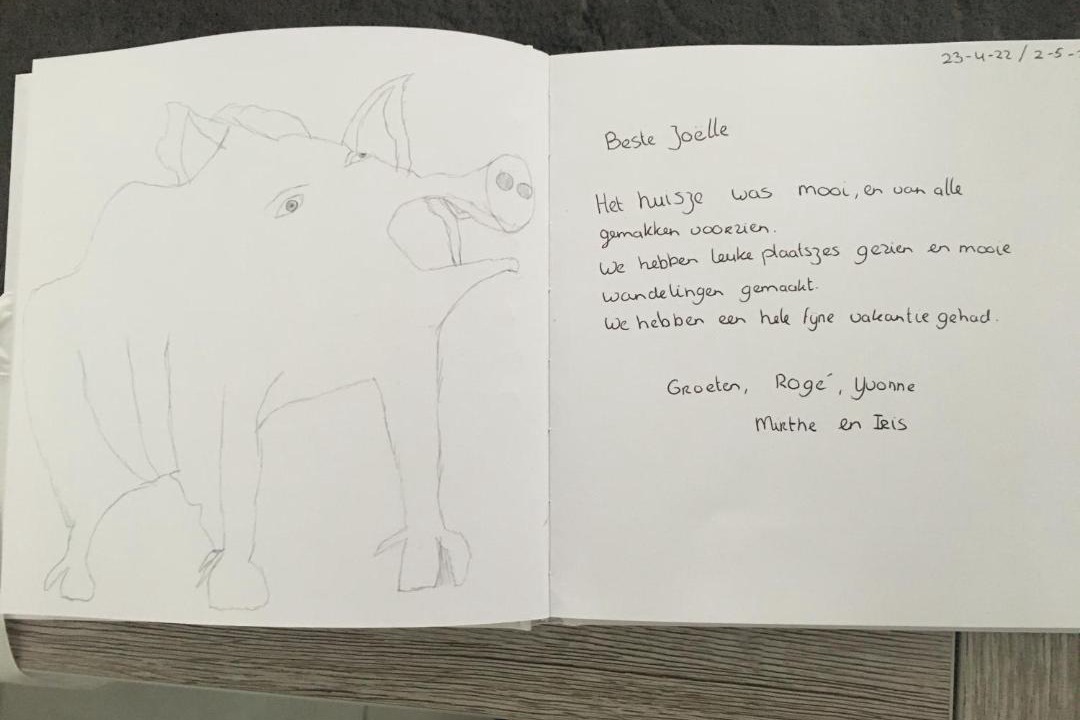 23-4-22 / 2-5-
Beste Joëlle
Het huisje was mooi, en van alle
gemakken voorzien.
We hebben leuke plaatsjes gezien en mooie
wandelingen gemaakt.
We hebben een hele fijne vakantie gehad.
Groeten, Rogé, Yvonne
Mirthe en Iris